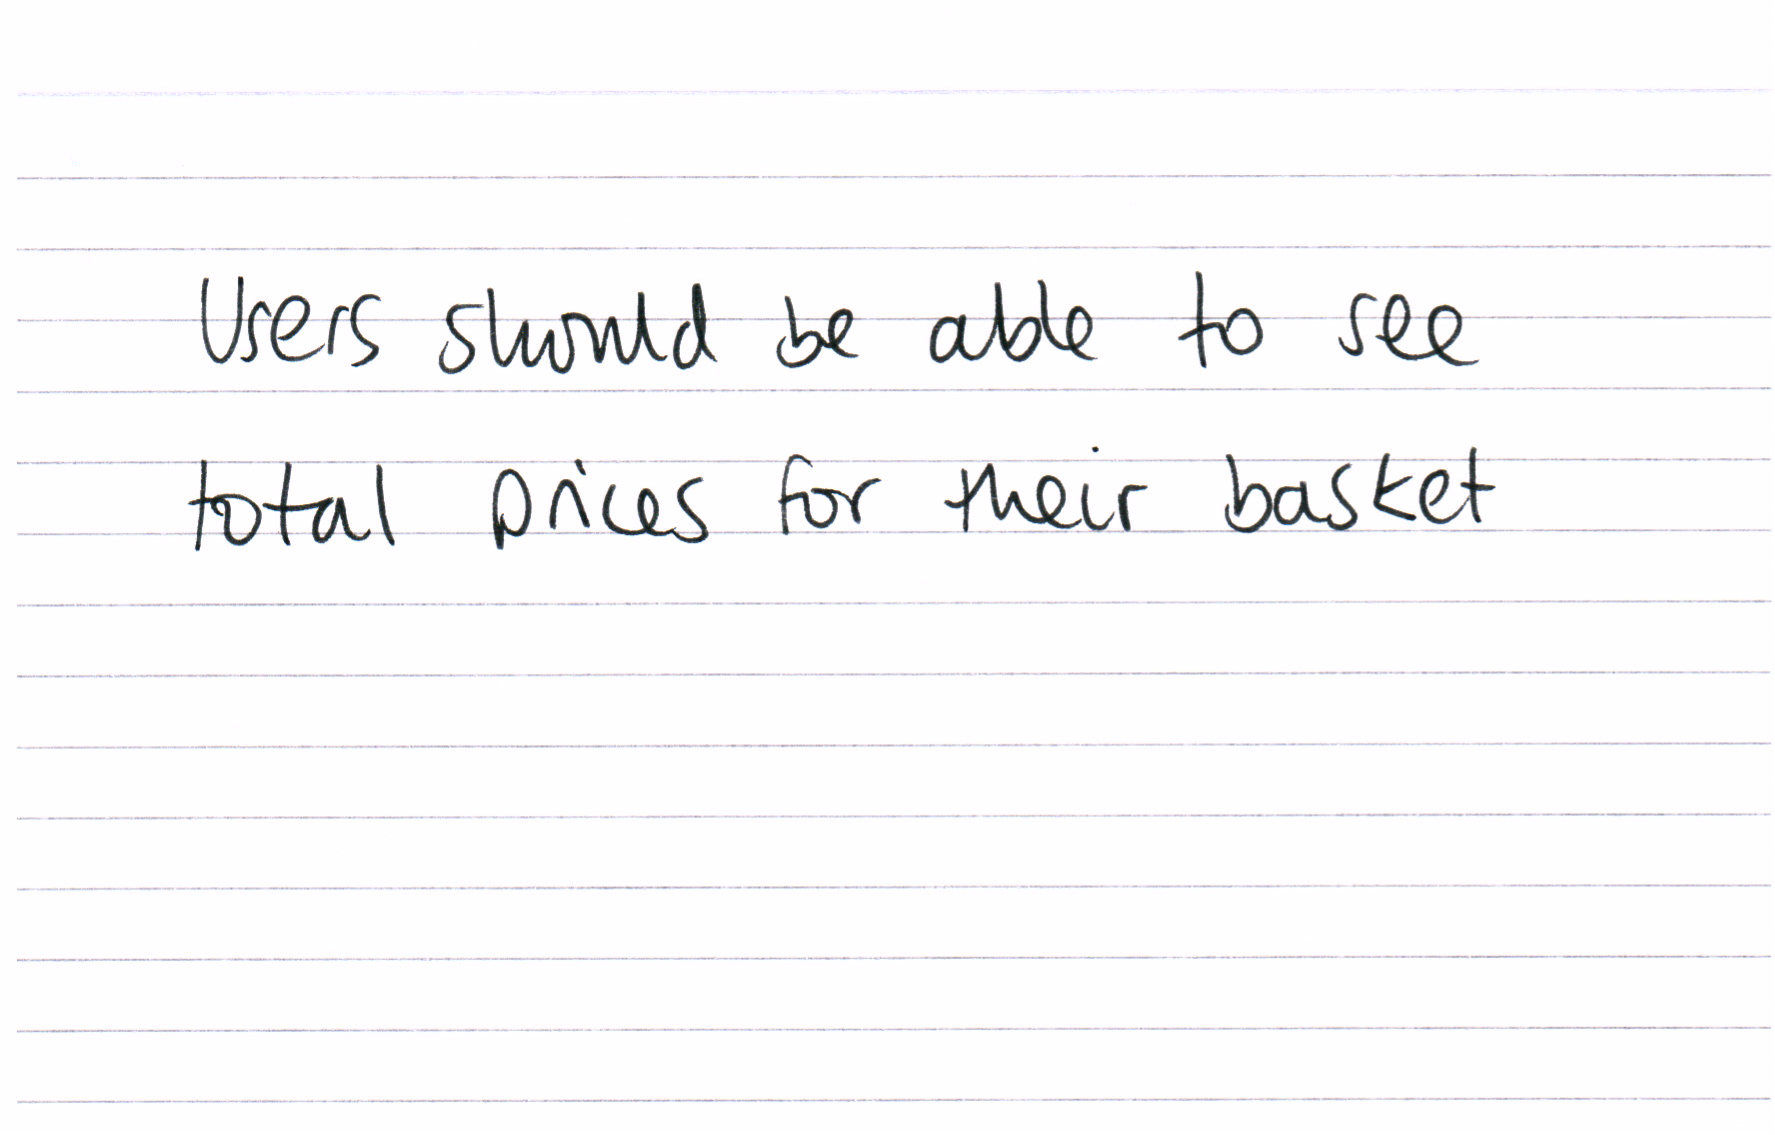 Users should be able to see
total prices for their basket